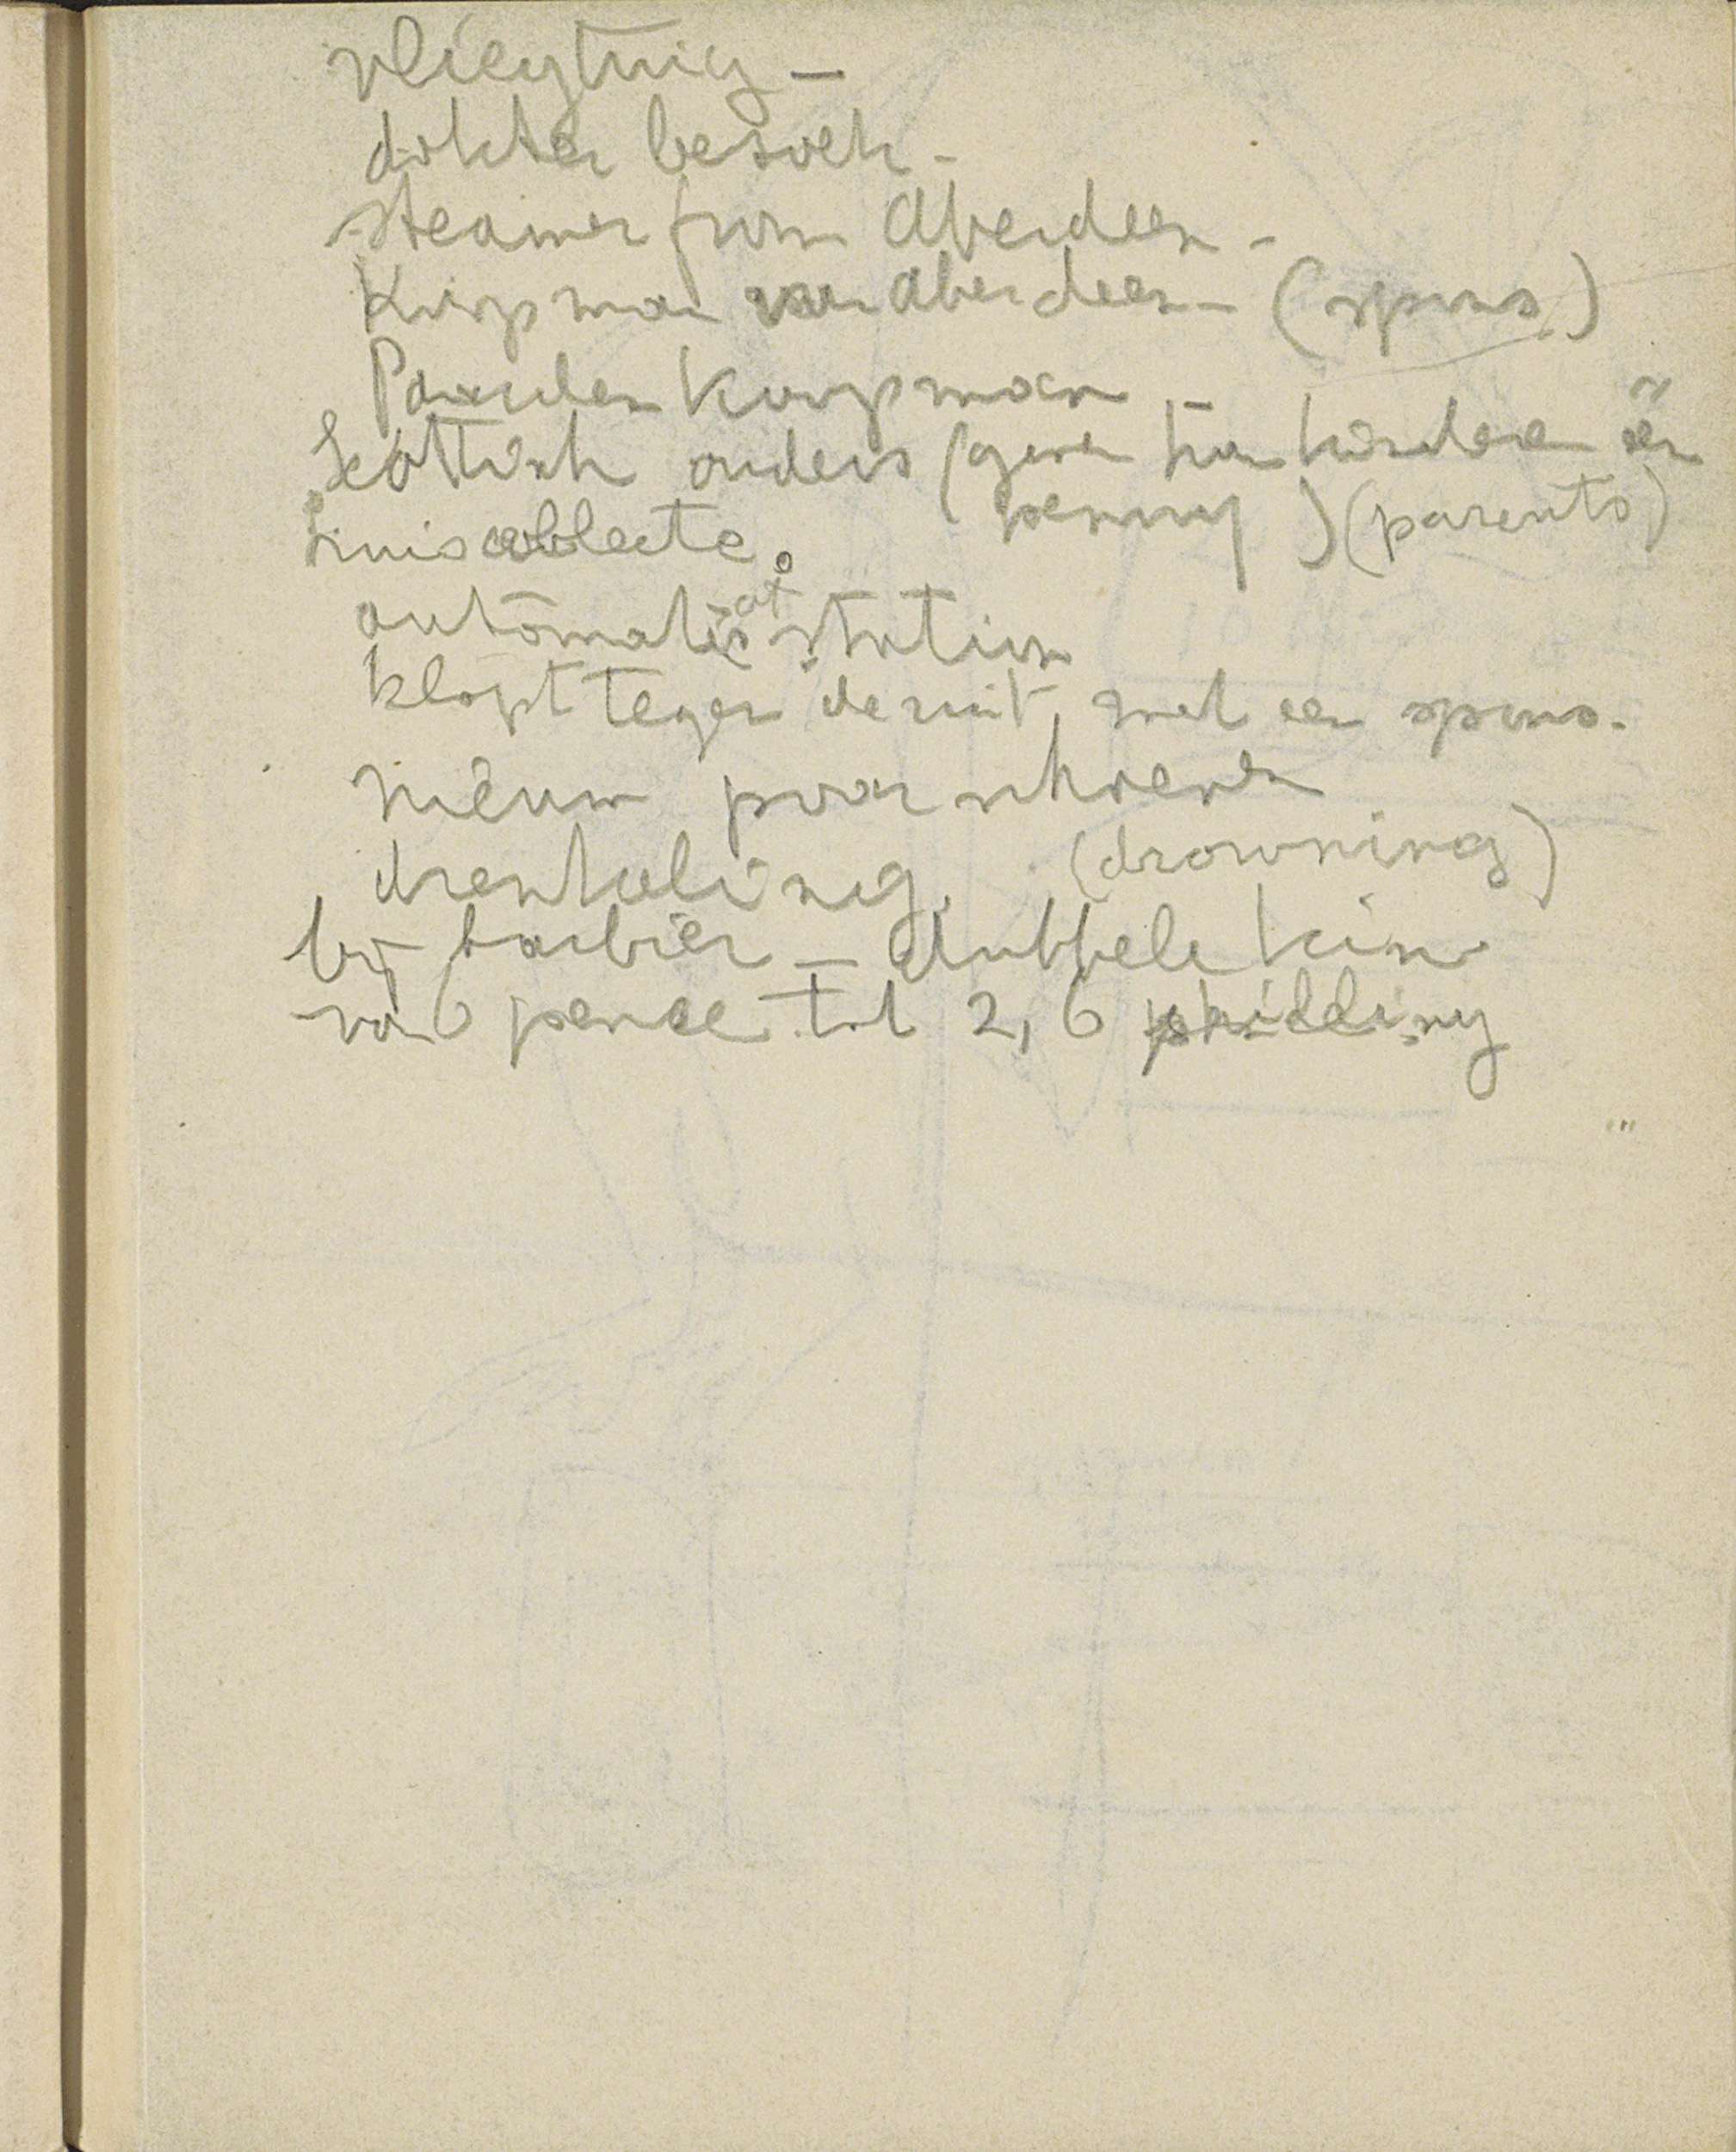 vliegtuig –
dokter besoek –
steamer from Aberdeen –
Koopman van Aberdeen – (spons)
Paarden Koopman –
Scottish ouders (geven hun kinderen een
penny) (parents)
huiscollecte.
automatic at station
klopt tegen de ruit met een spons.
nieuw paar schoenen
drenkeling. (drowning)
bij barbier – dubbele kin
van 6 pence tot 2,6 shilling